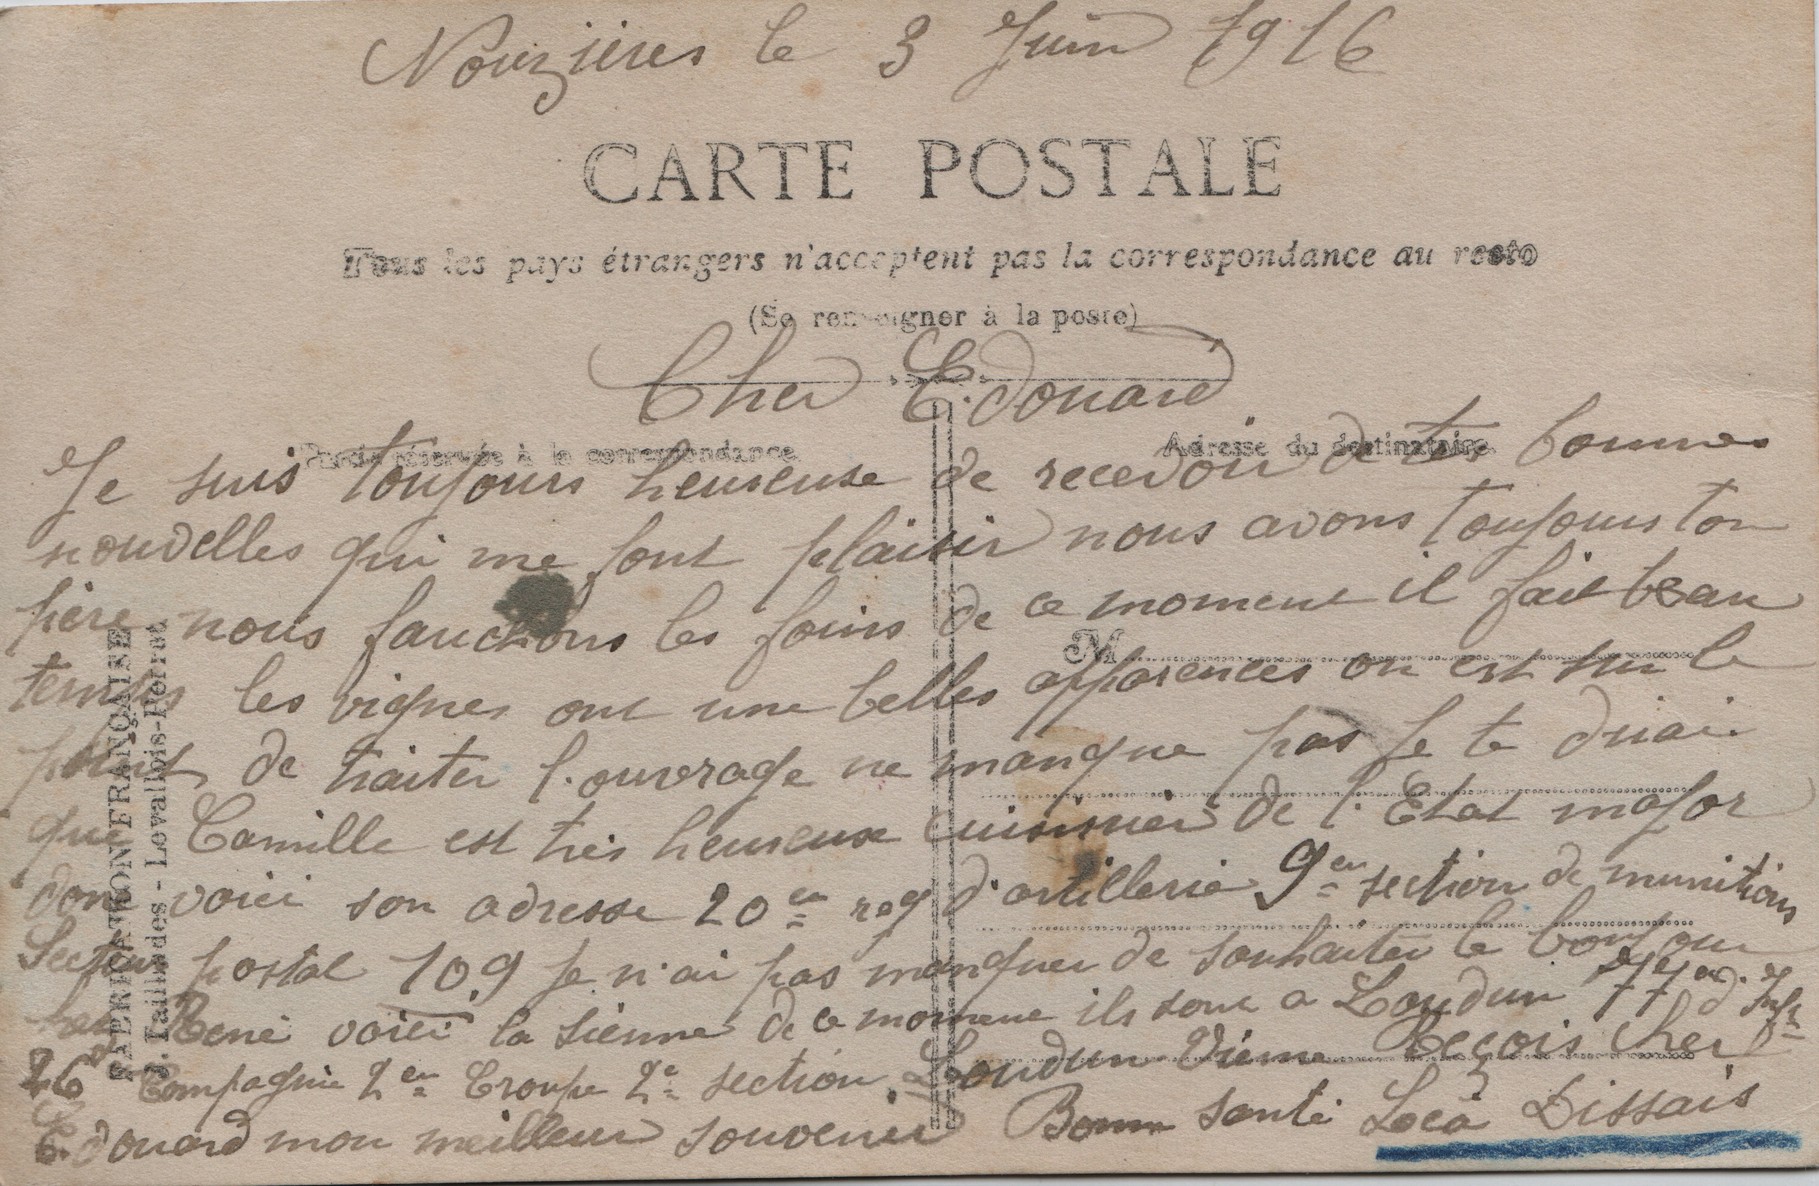 Nouzières le 3 Juin 1916
CARTE POSTALE
Tous les pays étrangers n'acceptent pas la correspondance au recto
(Se renseigner à la poste)
Cher Edouard
Partie réservée à la correspondance
Adresse du destinataire
Je suis toujours heureuse de recevoir de tes bonnes
nouvelles qui me font plaisir nous avons toujours ton
père nous fauchons les foins de ce moment il fait beau
temps les vignes ont une belles apparences on est sur le
point de traiter l'ouvrage ne manque pas je te dirai
que Camille est très heureux cuisinier de l'Etat major
dont voici son adresse 20en reg d'artillerie 9en section de munitions
Secteur postal 109 je n'ai pas manquer de souhaiter le bonjour
René voici la sienne de ce moment ils sont a Loudun 77en d'Inf
26e Compagnie 2en Troupe 2e section Loudun Vienne Reçois Cher
Edouard mon meilleur souvenir Bonne santé Loca Dissais
M
FABRICATION FRANÇAISE
J. Taillades - Levallois-Perret